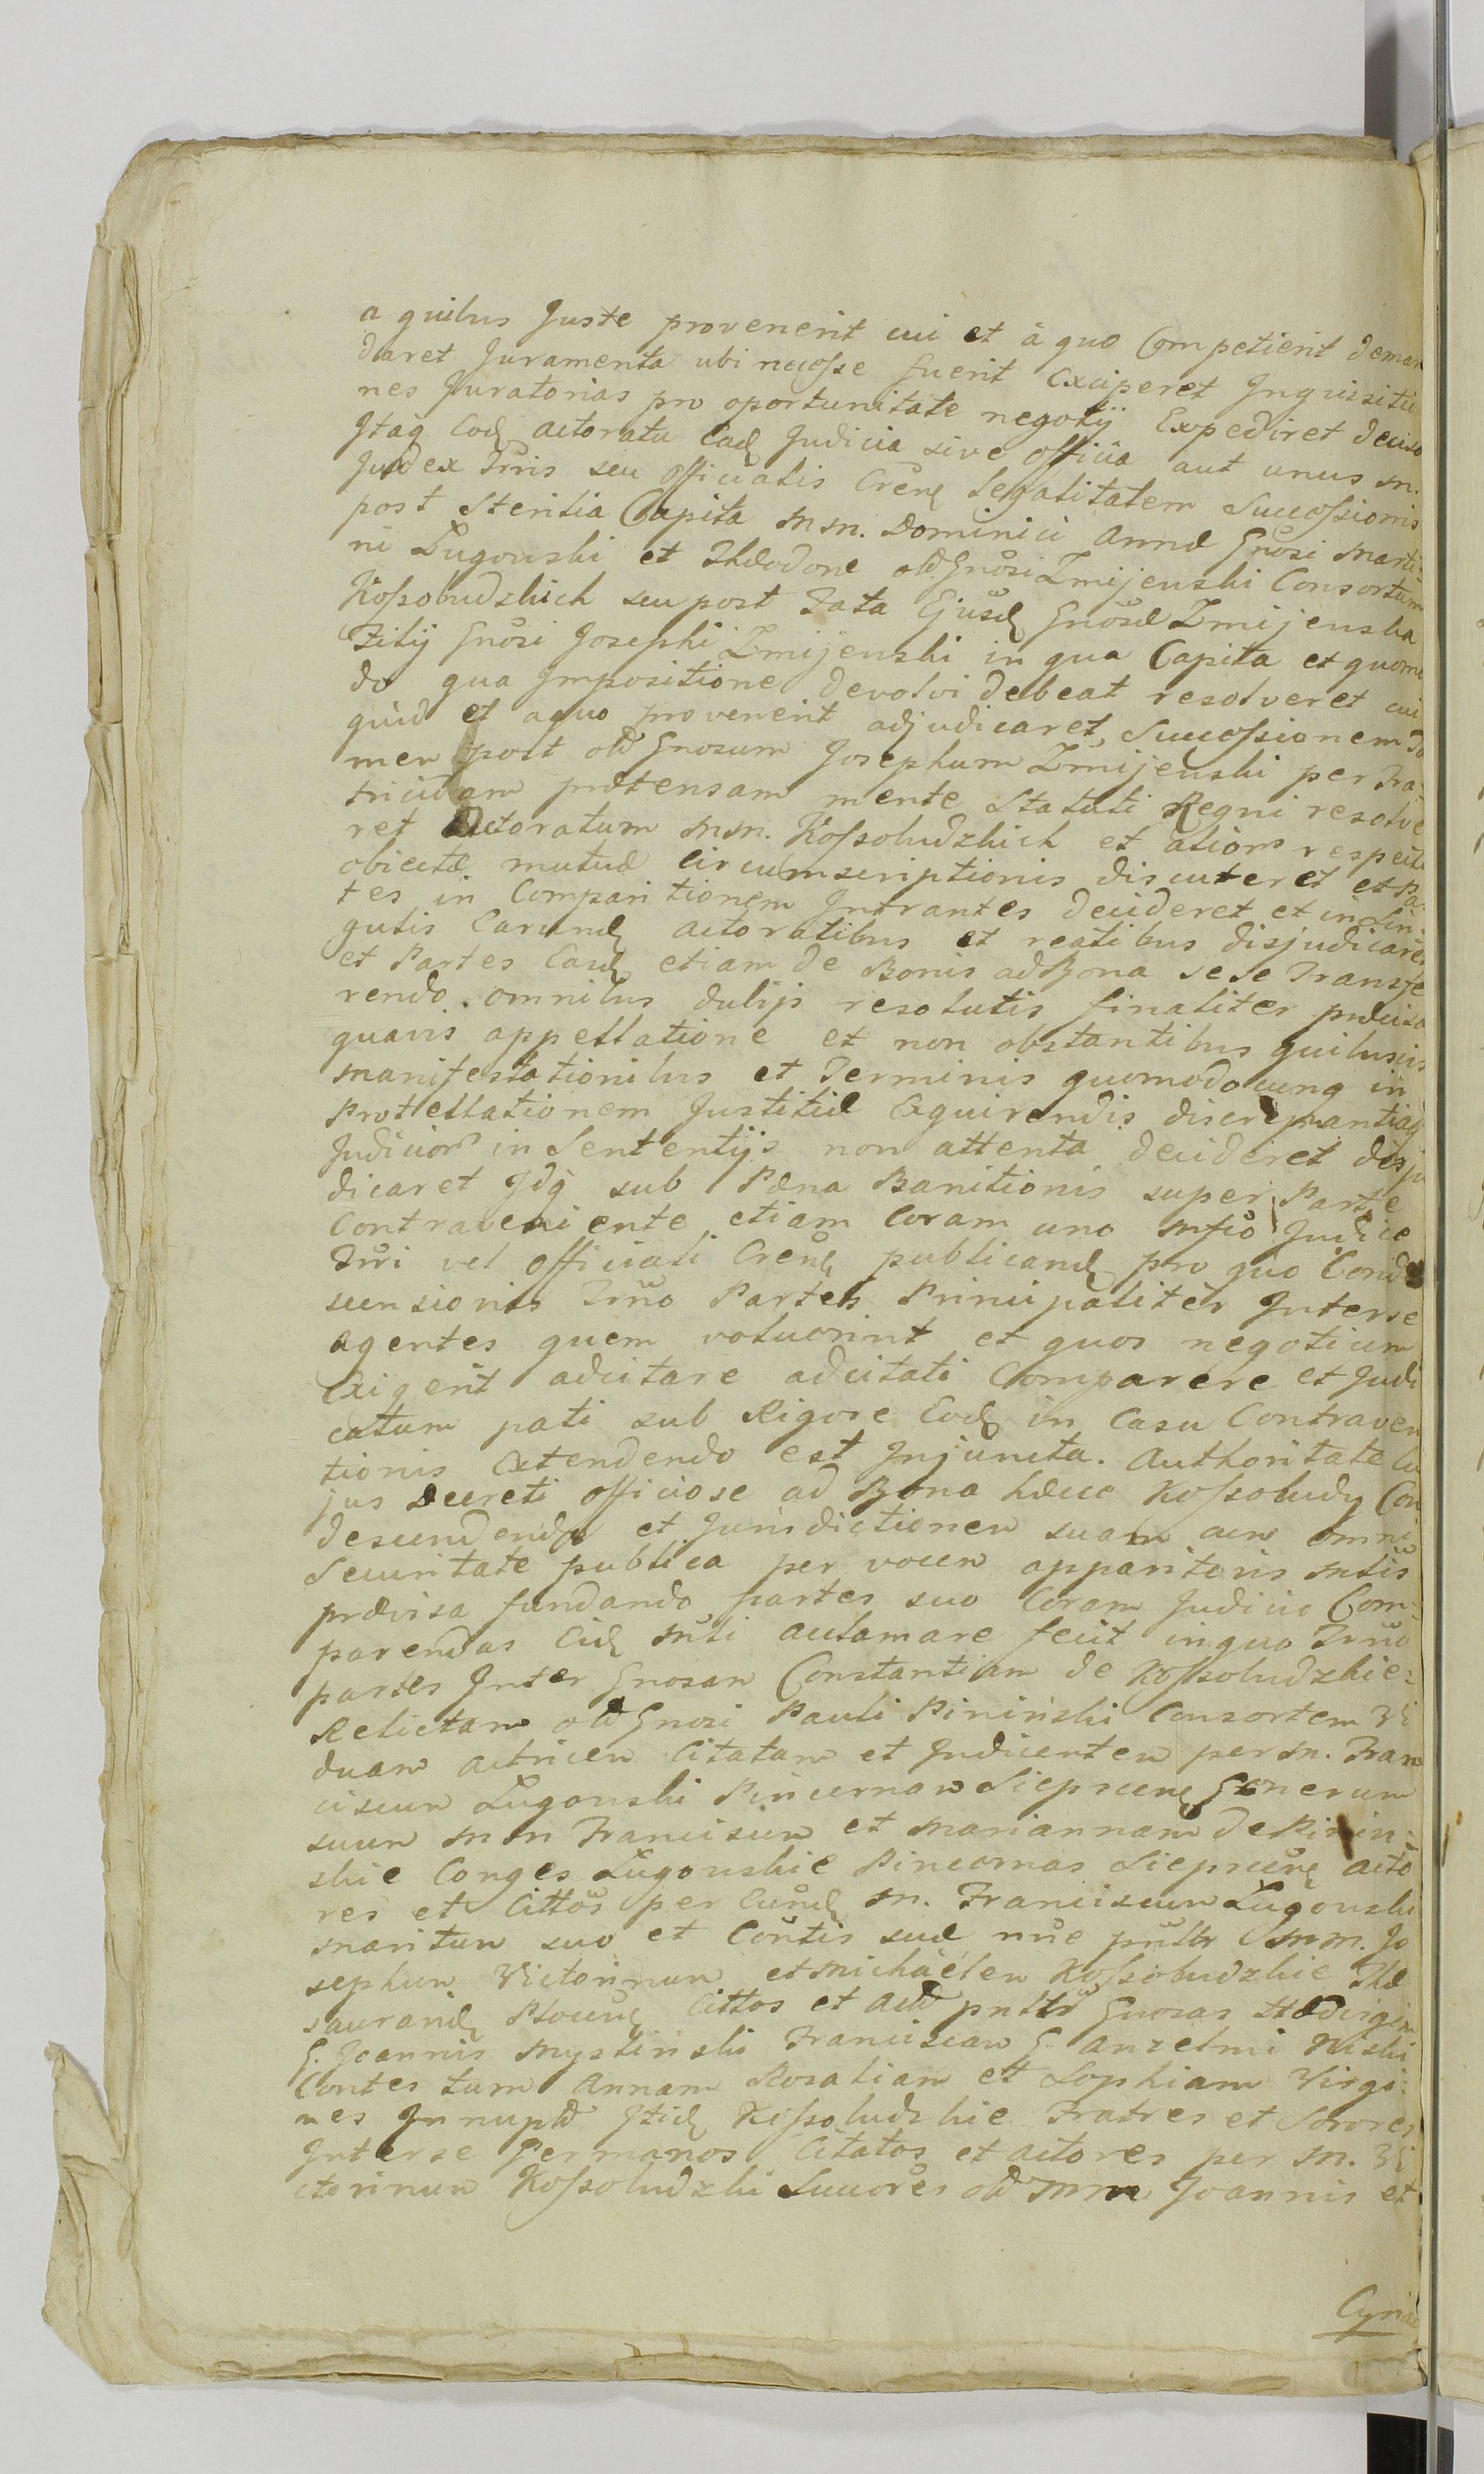 a quibus Juste provenerit cui et à quo Competierit deman
daret Juramenta ubi necesse fuerit Exciperet Inquisitio
nes Juratorias pro oportunitate negotÿ Expediret deciso
Itaq Eod actoratu Ead Judicia sive officia aut unus M.
Judex Trris seu officialis Crens legalitatem Successionis
post Sterilia Capita MM. Dominici Annæ Gnosi Marti
ni Ługowski et Theodoræ olĩ Gnosi Zmijewski Consortum
Kossobudzkich seu post Fata Ejusd Gnosæ Zmijewska
Filÿ Gnosi Josephi Zmijewski in qua Capita et quomo
do qua Impositione devolvi debeat resolveret cui
quid et aquo provenerit adjudicaret, Successionem Ta
men post olĩ Gnosum Josephum Zmijewski per Fra
triciam prætensam mente Statuti Regni resolve
ret Actoratum MM. Kossobudzkich et aliorũ respectu
obiectæ mutuæ circumscriptionis discuteret et Pa
tes in Comparitionem Intrantes decideret et in Sin
gulis Earund actoratibus et reatibus disjudicaret
et Partes Easd etiam de Bonis ad Bona sese Transfe
rendo. omnibus dubijs resolutis finaliter præcisa
quavis appellatione et non obstantibus quibusvis
Manifestationibus et Terminis quomodocunq in
Protellationem Justitiæ Exquirendis discrepantiaq
Judiciorũ in Sententijs non attenta decideret disju
dicaret Idq sub Pæna Banitionis super Parte
Contraveniente etiam Coram uno Mfico Judice
Trri vel officiali Crens publicand pro quo Conde
scensionis Trno Partes Principaliter Interse
agentes quem voluerint et quos negotium
Exigerit adcitare adcitati Comparere et Judi
catum pati sub Rigore Eod in Casu Contraven
tionis Extendendo est Injuncta. Authoritate cu
jus Decreti officiose ad Bona hæcce Kossobudy Con
descendendo et Jurisdictionem suam cum omni
Securitate publica per vocem apparitoris Mlis
prævisa fundando partes suo Coram Judicio Com=
parendas Eid Mrli aclamare fecit inquo Trno
partes Inter Gnosam Constantiam de Kossobudzkie=
Relictam olĩ Gnosi Pauli Pininski Consortem Vi
duam actricem Citatam et Indicentem per M. Fran
ciscum Ługowski Pincernam Sieprcens Generum
suum MM Franciscum et Mariannam de Pinin=
skie Conges Ługowskie Pincernas Sieprcens acto
res et Cittos per Eund M. Franciscum Ługowski
Maritum suo et Contis suæ nne pnlbr MM. Jo
sephum Victorinum et Michaelem Kossobudzkie The
saurarid Plocens Cittos et act pnltr Gnosas Hædvigim
G. Joannis Mystinski Franciscam G. Anzelmi Niski
Contes tum Annam Rosaliam et Sophiam Virgi=
nes Innuptas Itid Kossobudzkie Fratres et Sorores
Interse Germanos Citatos et actores per M. Vi
ctorinum Kossobudzki Succores olĩ MM Joannis et
Cyria